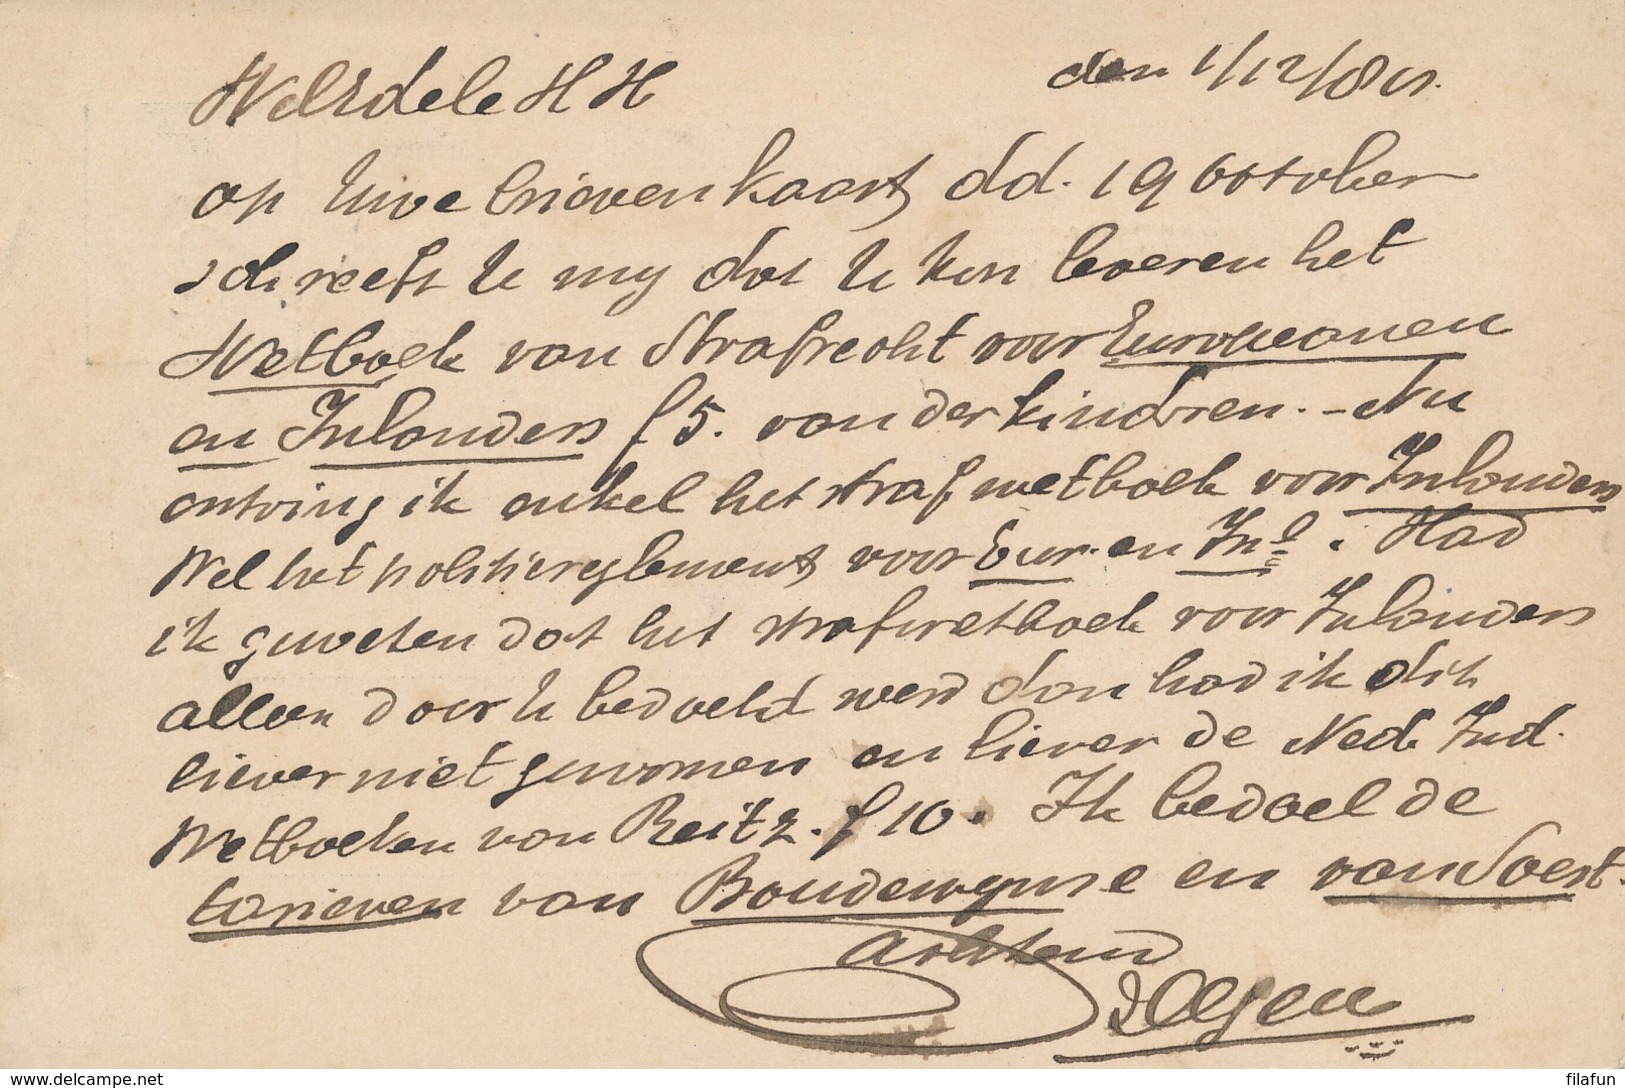 WelEdele HH den 1/12/85.
op Uwe brievenkaart dd. 19 October
schreeft U my dat U kon leveren het
Wetboek van Strafrecht voor Europeanen
en Inlanders f 5. van der Kindren. - Nu
ontving ik enkel het strafwetboek voor Inlanders
Wel het politiereglement voor Eur. en Inl. Had
ik geweten dat het strafwetboek voor Inlanders
alleen door U bedoeld werd dan had ik dit
liever niet genomen en liever de Ned. Ind.
Wetboeken van Reitz. f 10. Ik bedoel de
tarieven van Boudewynse en van Soest.
Achtend
www.delcampe.net filafun